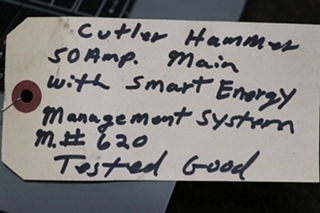 Cutler Hammer
50 Amp. Main
with Smart Energy
Management System
M.# 620
Tested Good